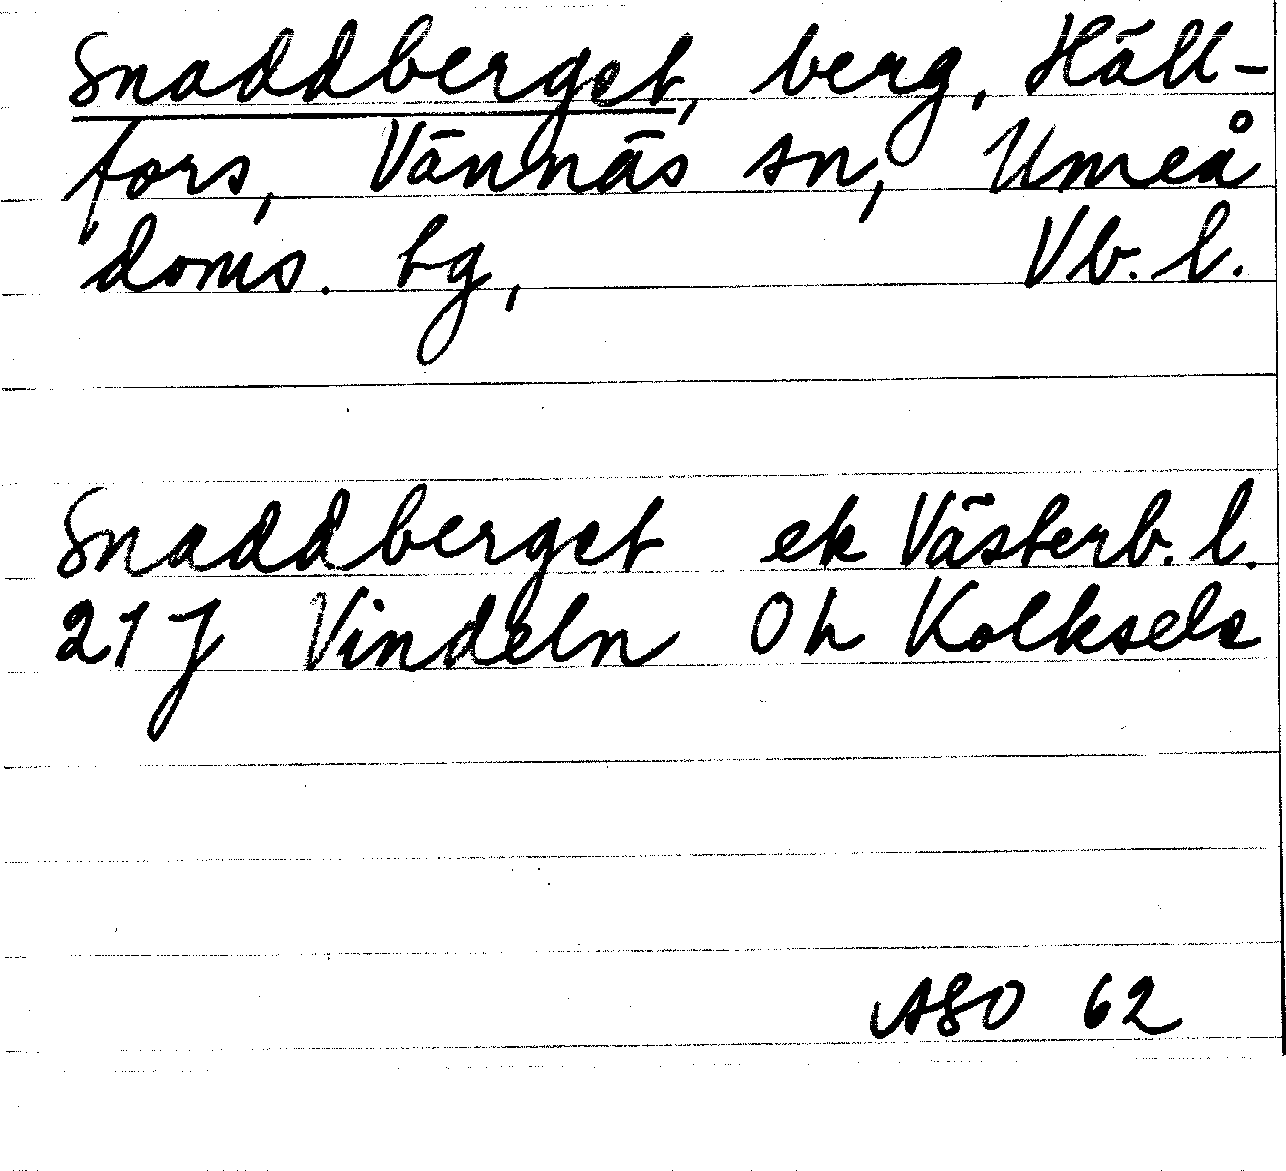 Snaddberget, berg, Häll-
fors, Vännäs sn, Umeå
doms. bg, Vb. l.
Snaddberget ek Västerb. l.
21J Vindeln Oh Kolksele
ASO 62